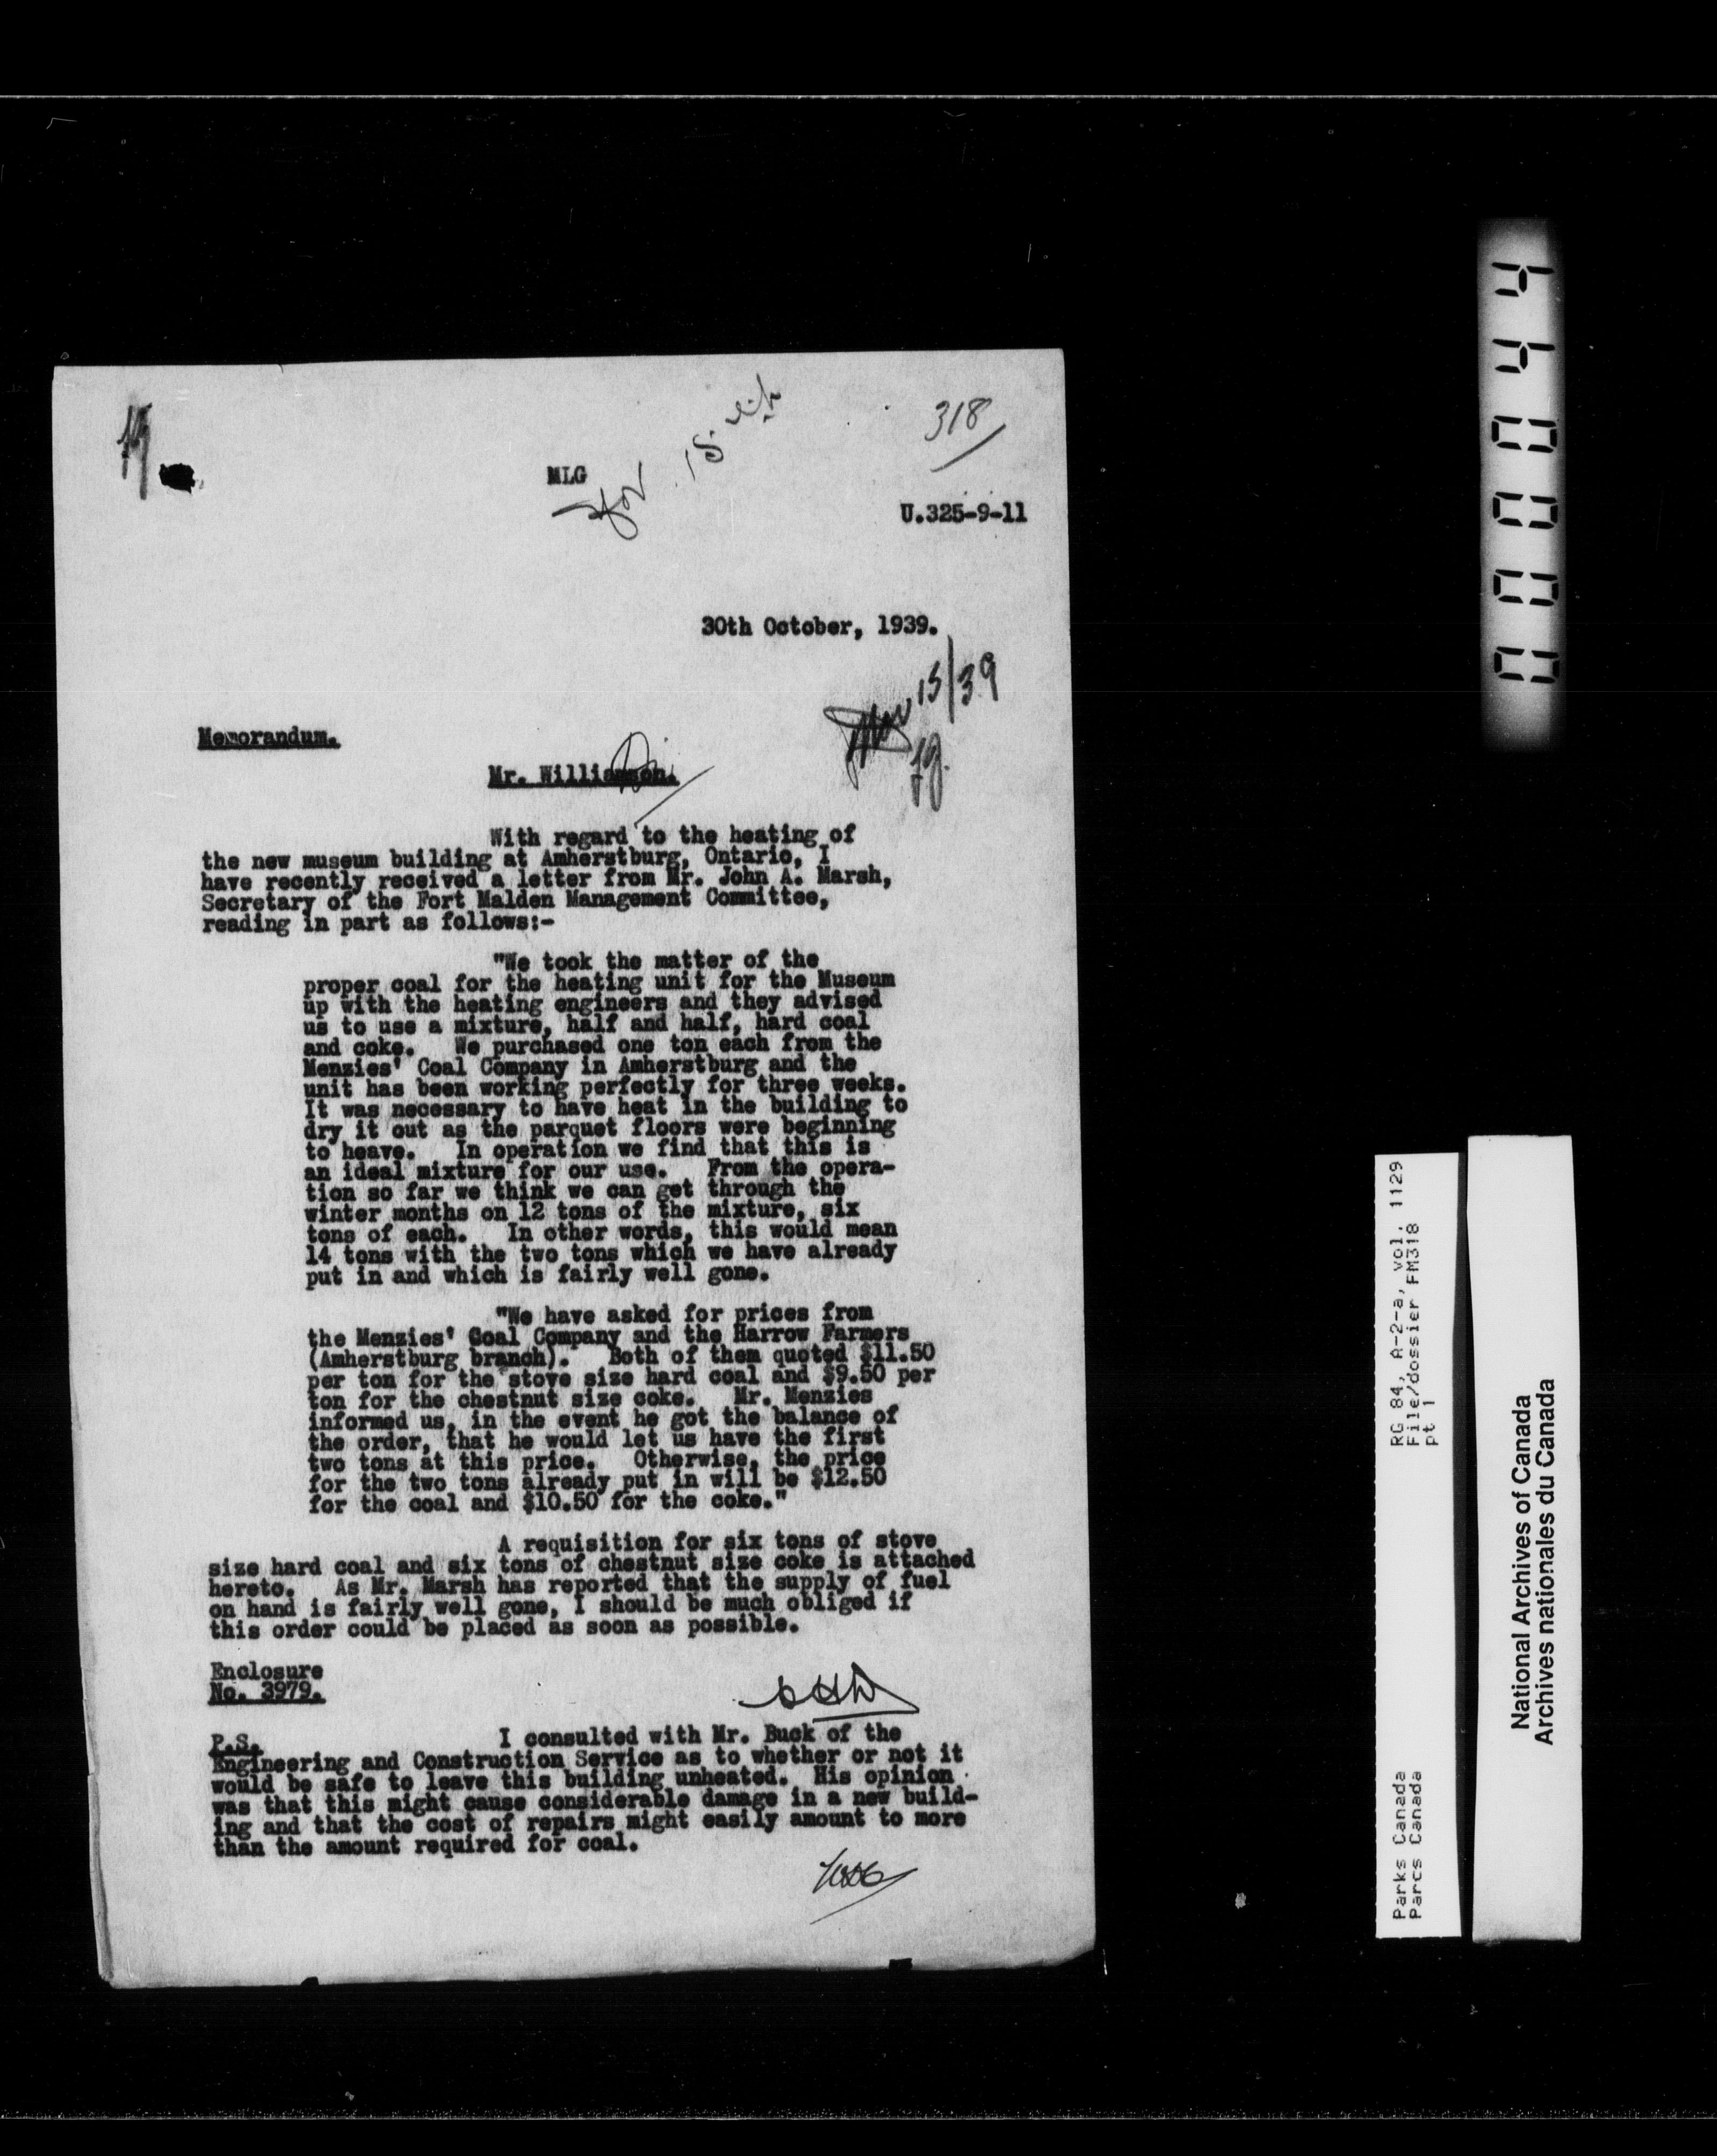 318
MLG
Nov. 15.
U.325-9-11
30th October, 1939.
Nov 15/39
Memorandum.
Mr. Williamson.
With regard to the heating of
the new museum building at Amherstburg, Ontario, I
have recently received a letter from Mr. John A. Marsh,
Secretary of the Fort Malden Management Committee,
reading in part as follows:-
"We took the matter of the
proper coal for the heating unit for the Museum
up with the heating engineers and they advised
us to use a mixture, half and half, hard coal
and coke. We purchased one ton each from the
Menzies' Coal Company in Amherstburg and the
unit has been working perfectly for three weeks.
It was necessary to have heat in the building to
dry it out as the parquet floors were beginning
to heave. In operation we find that this is
an ideal mixture for our use. From the opera-
tion so far we think we can get through the
winter months on 12 tons of the mixture, six
tons of each. In other words, this would mean
14 tons with the two tons which we have already
put in and which is fairly well gone.
"We have asked for prices from
the Menzies' Coal Company and the Harrow Farmers
(Amherstburg branch). Both of them quoted $11.50
per ton for the stove size hard coal and $9.50 per
ton for the chestnut size coke. Mr. Menzies
informed us, in the event he got the balance of
the order, that he would let us have the first
two tons at this price. Otherwise, the price
for the two tons already put in will be $12.50
for the coal and $10.50 for the coke."
A requisition for six tons of stove
size hard coal and six tons of chestnut size coke is attached
hereto. As Mr. Marsh has reported that the supply of fuel
on hand is fairly well gone, I should be much obliged if
this order could be placed as soon as possible.
Enclosure
No. 3979.
P.S. I consulted with Mr. Buck of the
Engineering and Construction Service as to whether or not it
would be safe to leave this building unheated. His opinion
was that this might cause considerable damage in a new build-
ing and that the cost of repairs might easily amount to more
than the amount required for coal.
000044
RG 84, A-2-a, vol. 1129
File/dossier FM318
pt 1
Parks Canada
Parcs Canada
National Archives of Canada
Archives nationales du Canada